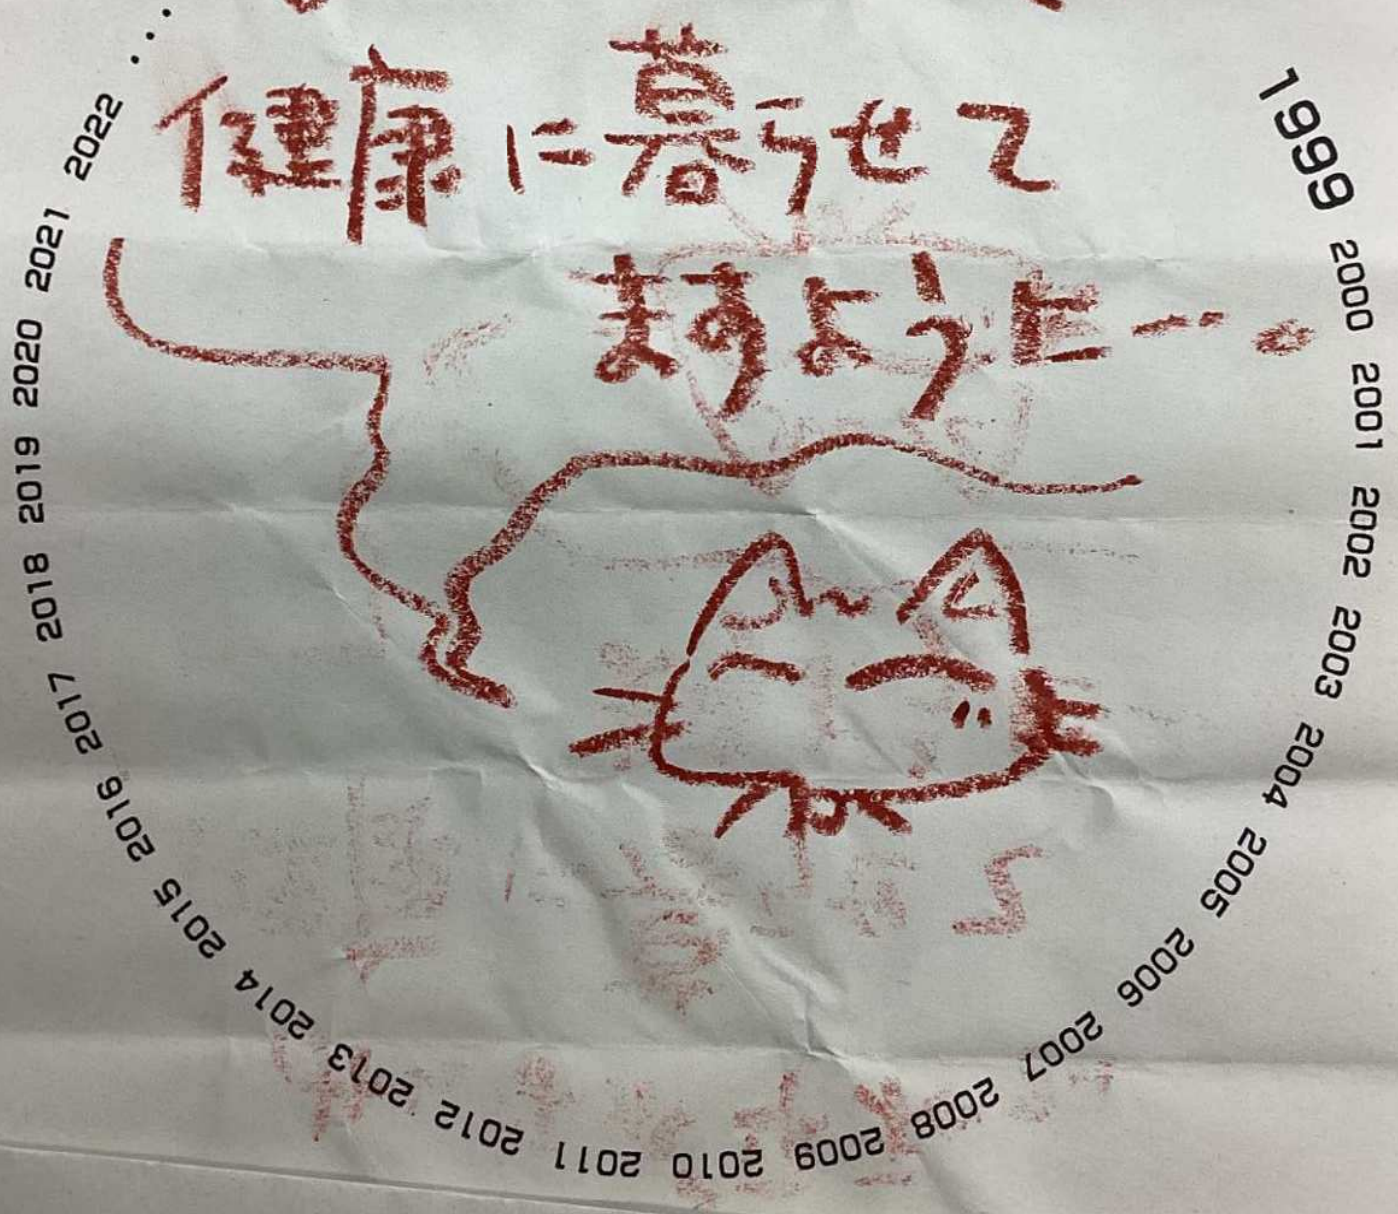 健康に暮らせて
ますように…。
1999 2000 2001 2002 2003 2004 2005 2006 2007 2008 2009 2010 2011 2012 2013 2014 2015 2016 2017 2018 2019 2020 2021 2022 ...